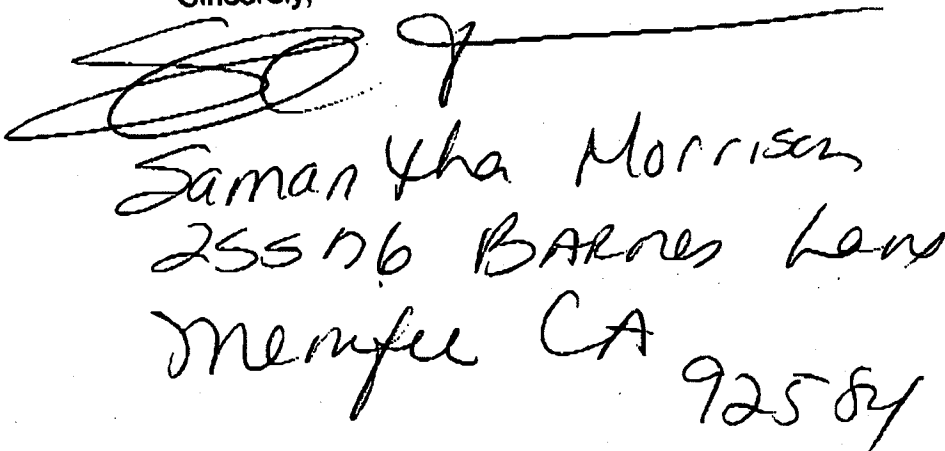 Sincerely,
Samantha Morrison
BARNES Lane
Menifee CA
92584